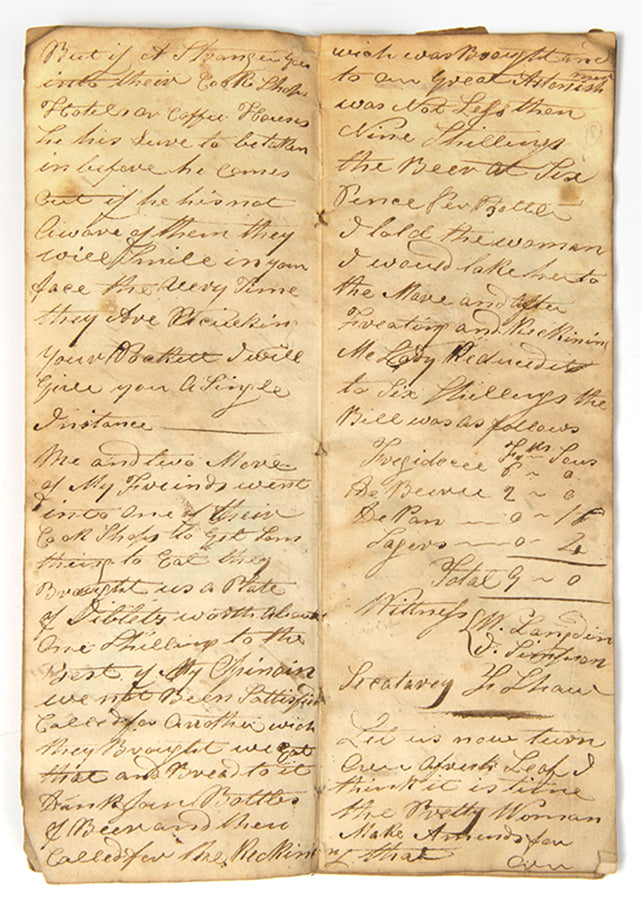 But if A Stranger goes
into their Cook Shops
Hotels or Coffee Houses
he his Sure to be taken
in before he comes
out if he his not
aware of them they
will Smile in your
face the Very Time
they Are Picking
your Pockett I will
Give you A Single
Instance
Me and two More
of My Freinds went
into one of their
Cook Shops to Get Som
thing to Eat they
Brought us a Plate
of Giblets worth about
One Shilling to the
best of My Opinoin
we not Been Sattisfied
Called for Another wich
they Brought we Eat
that and Bread to it
Drank four Bottles
of Beer and then
Called for the Reckining
wich was Brought and
to our Great Astonish
ment
was Not Less then
Nine Shillings
the Beer at Six
Pence Per Bottle
I told the woman
I would take her to
the Mare and after
and Reckining
Me Lady Reduced it
to Six Shillings the
Bill was as follows
Sous
6 ~ 0
De Beerre 2 ~ 0
De Pan — 0 ~ 16
— 0 ~ 2
Total 9 ~ 0
Wittness W. Langdin
J. Simpson
Secatarey Shaw
Let us now turn
over afresh Leaf I
think it is time
the Pretty Woman
Make Amends for
that
our